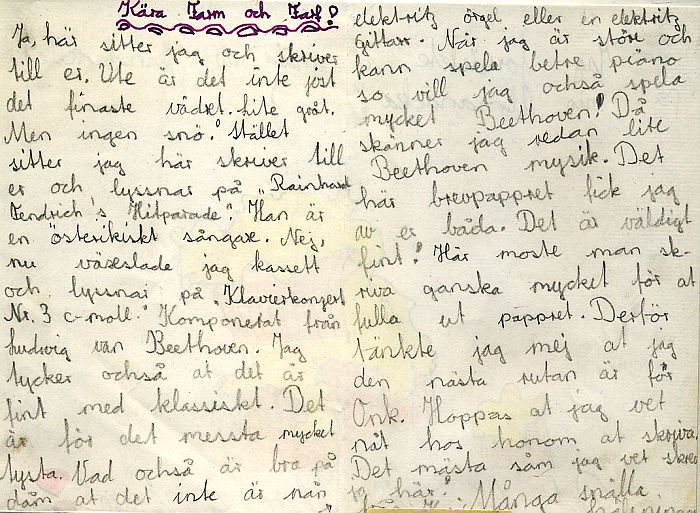 Kära Farm och Farf!
Ja, här sitter jag och skriver
till er. Ute är det inte just
det finaste vädret. Lite gråt.
Men ingen snö! Stället
sitter jag här skriver till
er och lyssnar på „Rainhard
Fendrich's Hitparade". Han är
en österikiskt sångare. Nej,
nu växslade jag kassett
och lyssnar på „Klavierkonzert
Nr. 3 c-moll." Komponerat från
Ludwig van Beethoven. Jag
tycker också at det är
fint med klassiskt. Det
är för det messta mycket
lysta. Vad ochså är bra på
dåm at det inte är nån
elektritz orgel eller en elektritz
Gittarr. När jag är störe och
kann spela betre piano
so vill jag ochså spela
mycket Beethoven! Då
skänner jag redan lite
Beethoven mysik. Det
här brevpappret fick jag
av er båda. Det är väldigt
fint! Här moste man sk-
riva ganska mycket för at
fulla ut pappret. Derför
tänkte jag mej at jag
den nästa rutan är för
Onk. Hoppas at jag vet
nåt hos honom at skriva.
Det mästa såm jag vet skrev
jag här! Många snälla